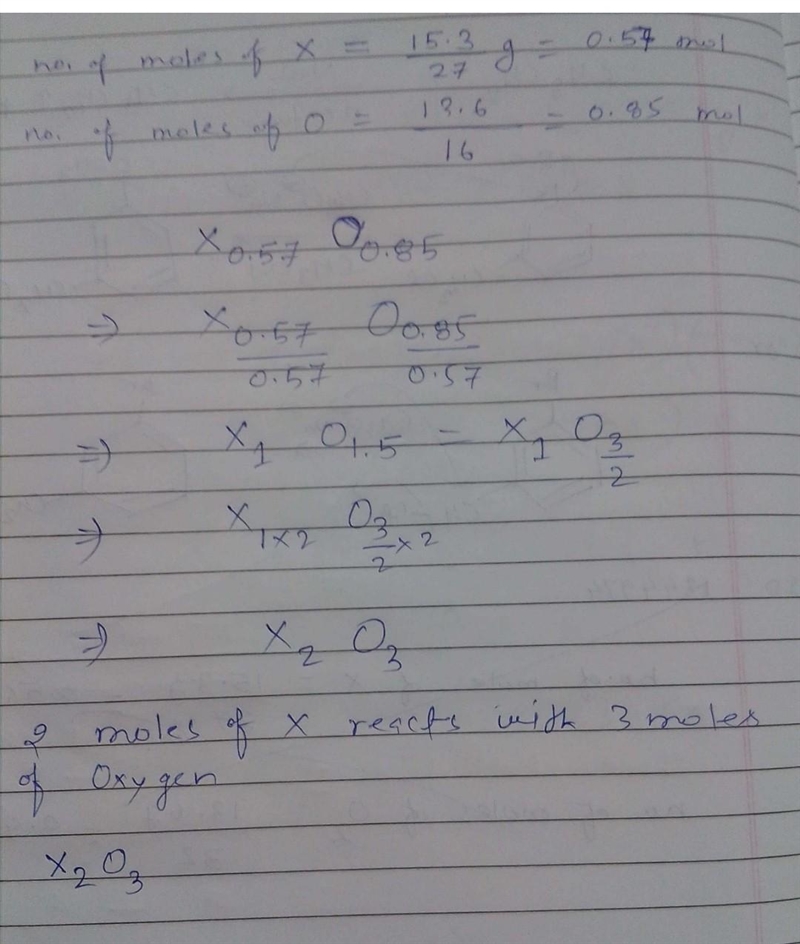 no. of moles of X = 15.3/27 g = 0.57 mol
no. of moles of O = 13.6/16 = 0.85 mol
X0.57 O0.85
⇒ X0.57/0.57 O0.85/0.57
⇒ X1 O1.5 = X1 O3/2
⇒ X1×2 O3/2×2
⇒ X2 O3
2 moles of X reacts with 3 moles
of Oxygen
X2O3